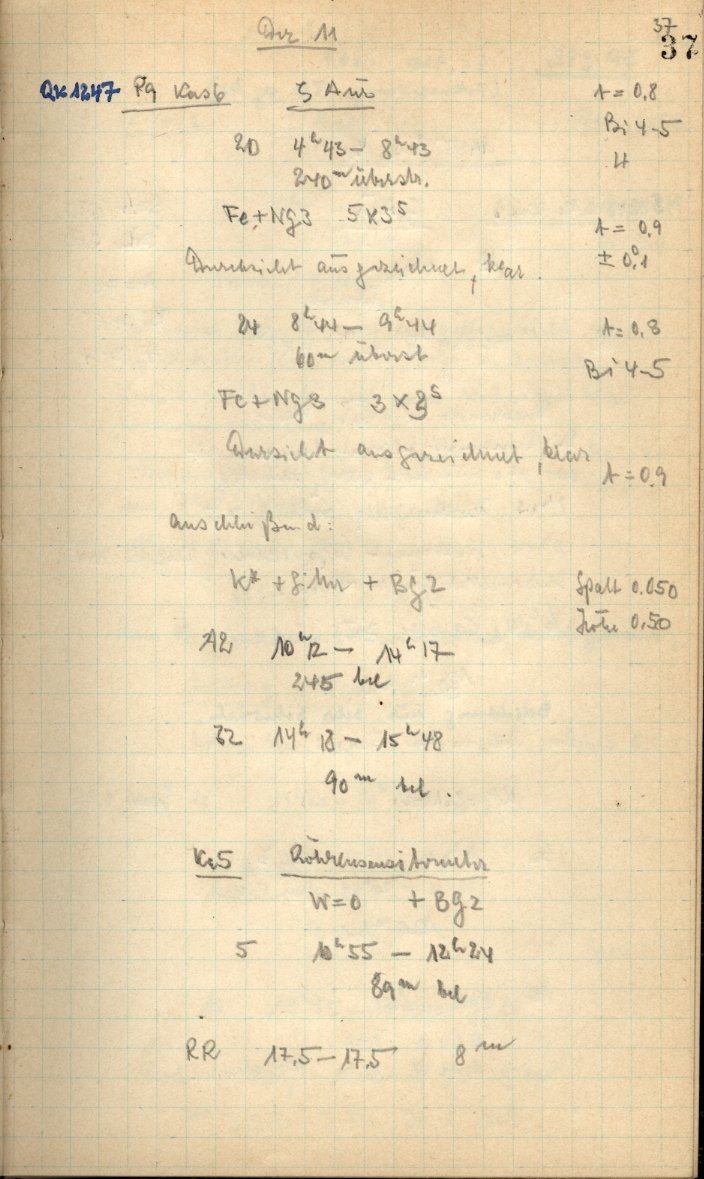 37
37
Dez 11
QK1247 Pg Kas6 ζ Aur A = 0,8
Bi 4-5
20 4ʰ43 – 8ʰ43
240ᵐ überstr.
Fe + Ng3 5×3⁵
A = 0,9
± 0,1
Durchsicht ausgezeichnet, klar.
24 8ʰ44 – 9ʰ44 A = 0,8
60ᵐ überst
Bi 4-5
Fe + Ng3 3×3⁵
Dursicht ausgezeichnet, klar
A = 0,9
anschließend:
+ BG2 Spalt 0.050
Höhe 0,50
A2 10ʰ12 – 14ʰ17
245 bel
32 14ʰ18 – 15ʰ48
90ᵐ bel.
K5 Röhrensensitometer
W=0 + BG2
5 10ʰ55 – 12ʰ24
89ᵐ bel
RR 17,5 – 17,5 8ᵐ